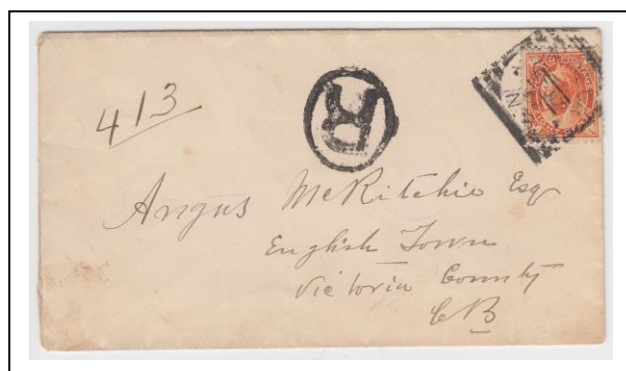 413
R
Angus McRitchie Esq
English Town
Victoria County
CB